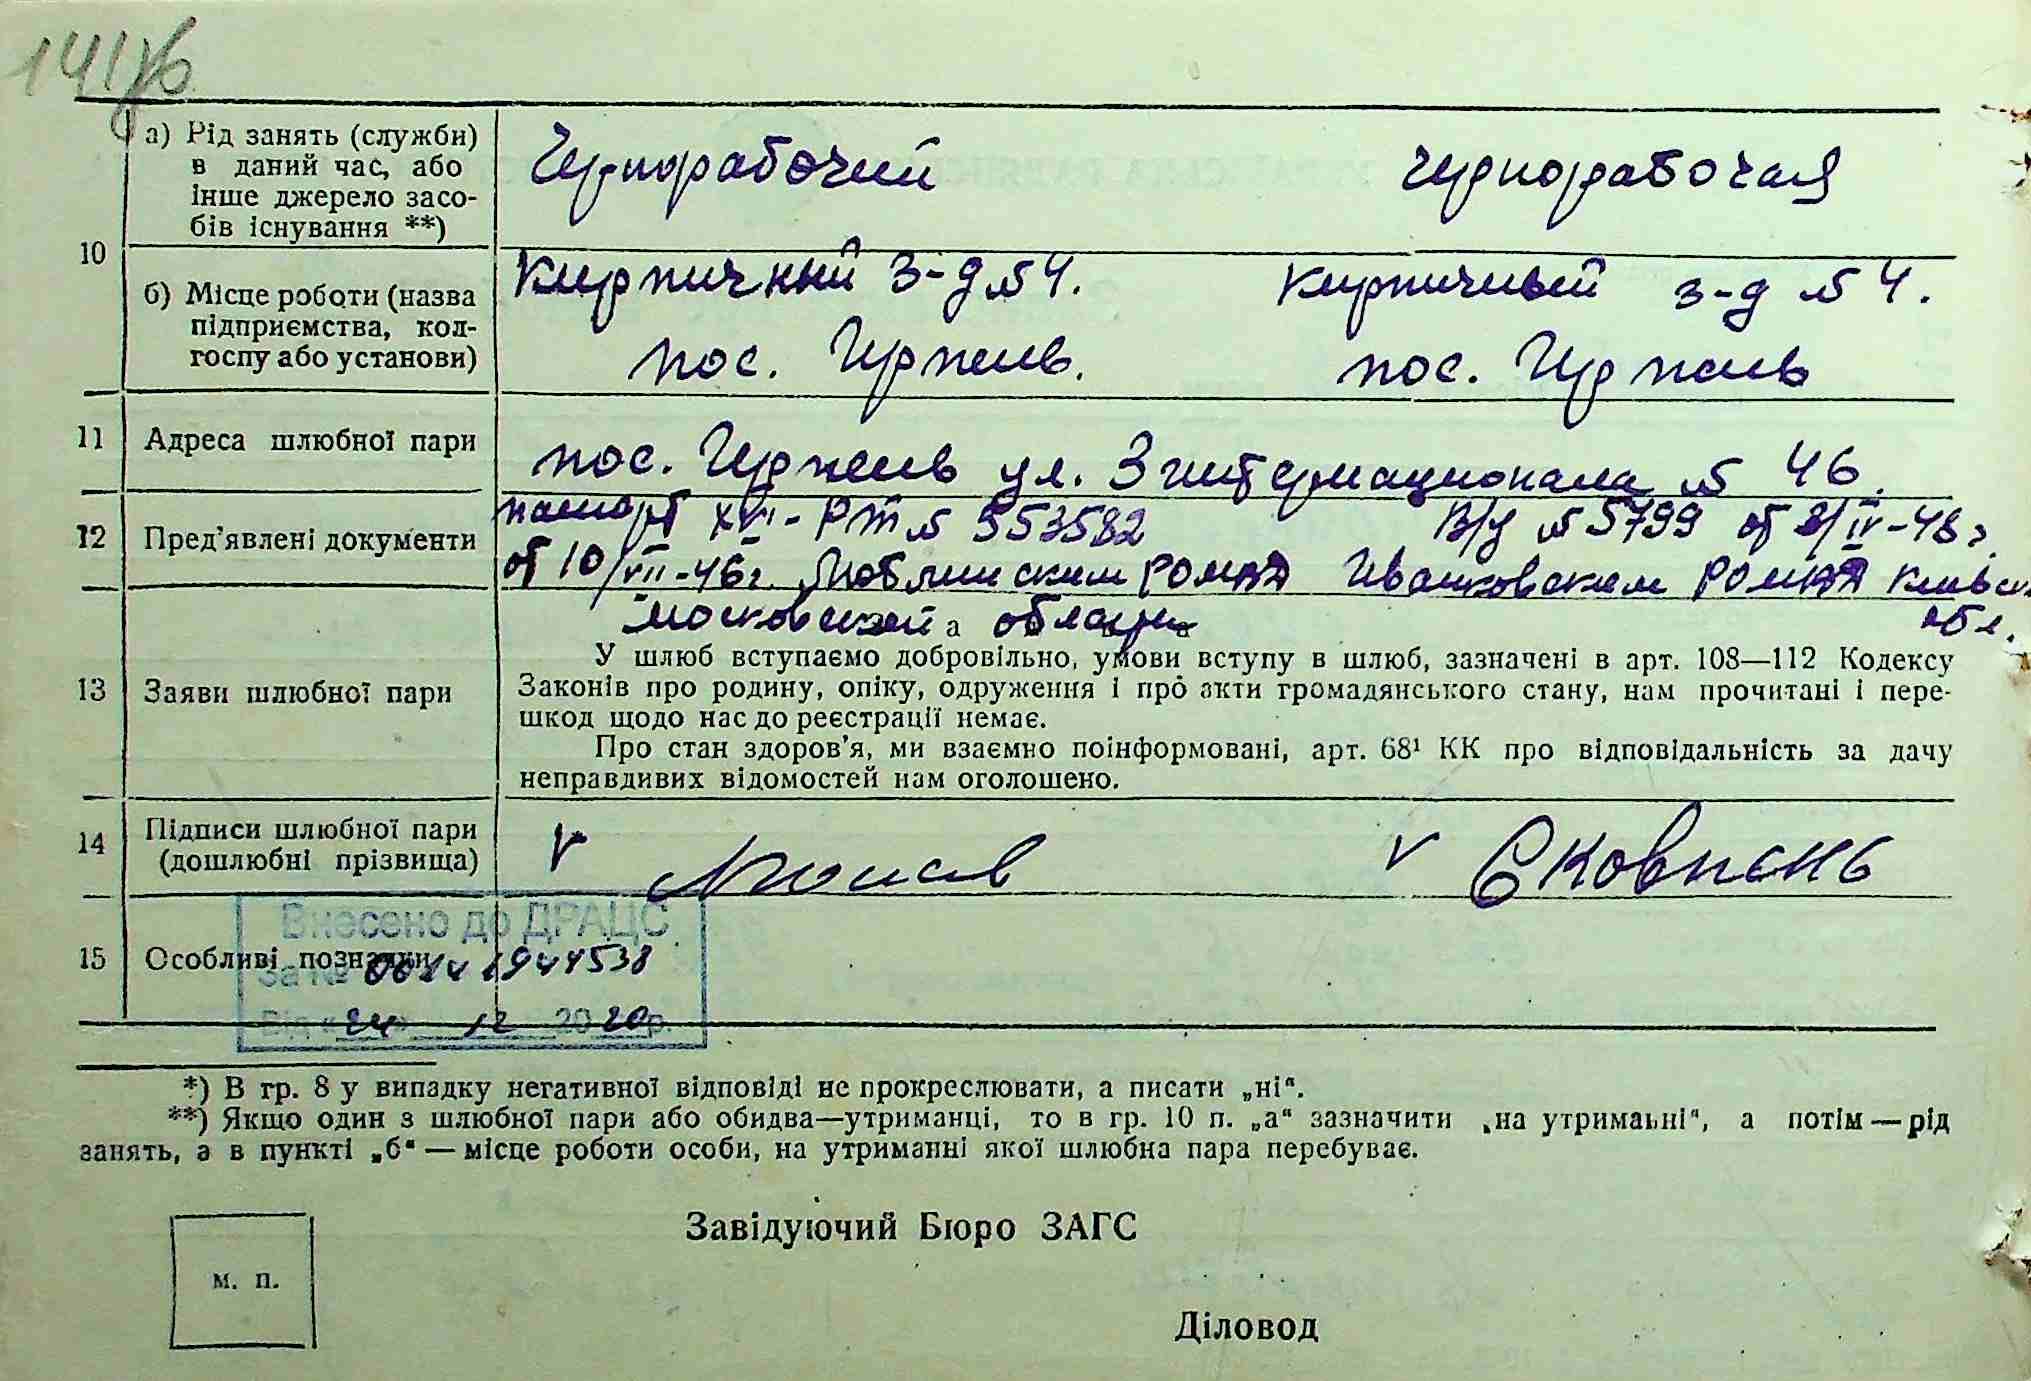 а) Рід занять (служби)
в даний час, або
інше джерело засо-
бів існування **)
Чернорабочий
чернорабочая
10
б) Місце роботи (назва
підприємства, кол-
госпу або установи)
Кирпичный з-д № 4.
пос. Ирпень.
Кирпичный з-д № 4.
пос. Ирпень
11 Адреса шлюбної пари
пос. Ирпень ул. 3 интернационала № 46.
12 Пред’явлені документи
паспорт XVI-РТ № 553582
от 10/VII-46г. Люблинским РОМВД
Московской области
В/у № 5799 от 2/IV-48г.
Иванковским РОМВД Киевск
обл.
13 Заяви шлюбної пари
У шлюб вступаємо добровільно, умови вступу в шлюб, зазначені в арт. 108—112 Кодексу
Законів про родину, опіку, одруження і про акти громадянського стану, нам прочитані і пере-
шкод щодо нас до реєстрації немає.
Про стан здоров’я, ми взаємно поінформовані, арт. 68¹ КК про відповідальність за дачу
неправдивих відомостей нам оголошено.
14 Підписи шлюбної пари
(дошлюбні прізвища)
V
V Сковпень
15 Особливі позначки
Внесено до ДРАЦС
За №
Від « 24 » 12 2020р.
*) В гр. 8 у випадку негативної відповіді не прокреслювати, а писати „ні“.
**) Якщо один з шлюбної пари або обидва—утриманці, то в гр. 10 п. „а“ зазначити „на утриманні“, а потім — рід
занять, а в пункті „б“ — місце роботи особи, на утриманні якої шлюбна пара перебуває.
Завідуючий Бюро ЗАГС
м. п.
Діловод